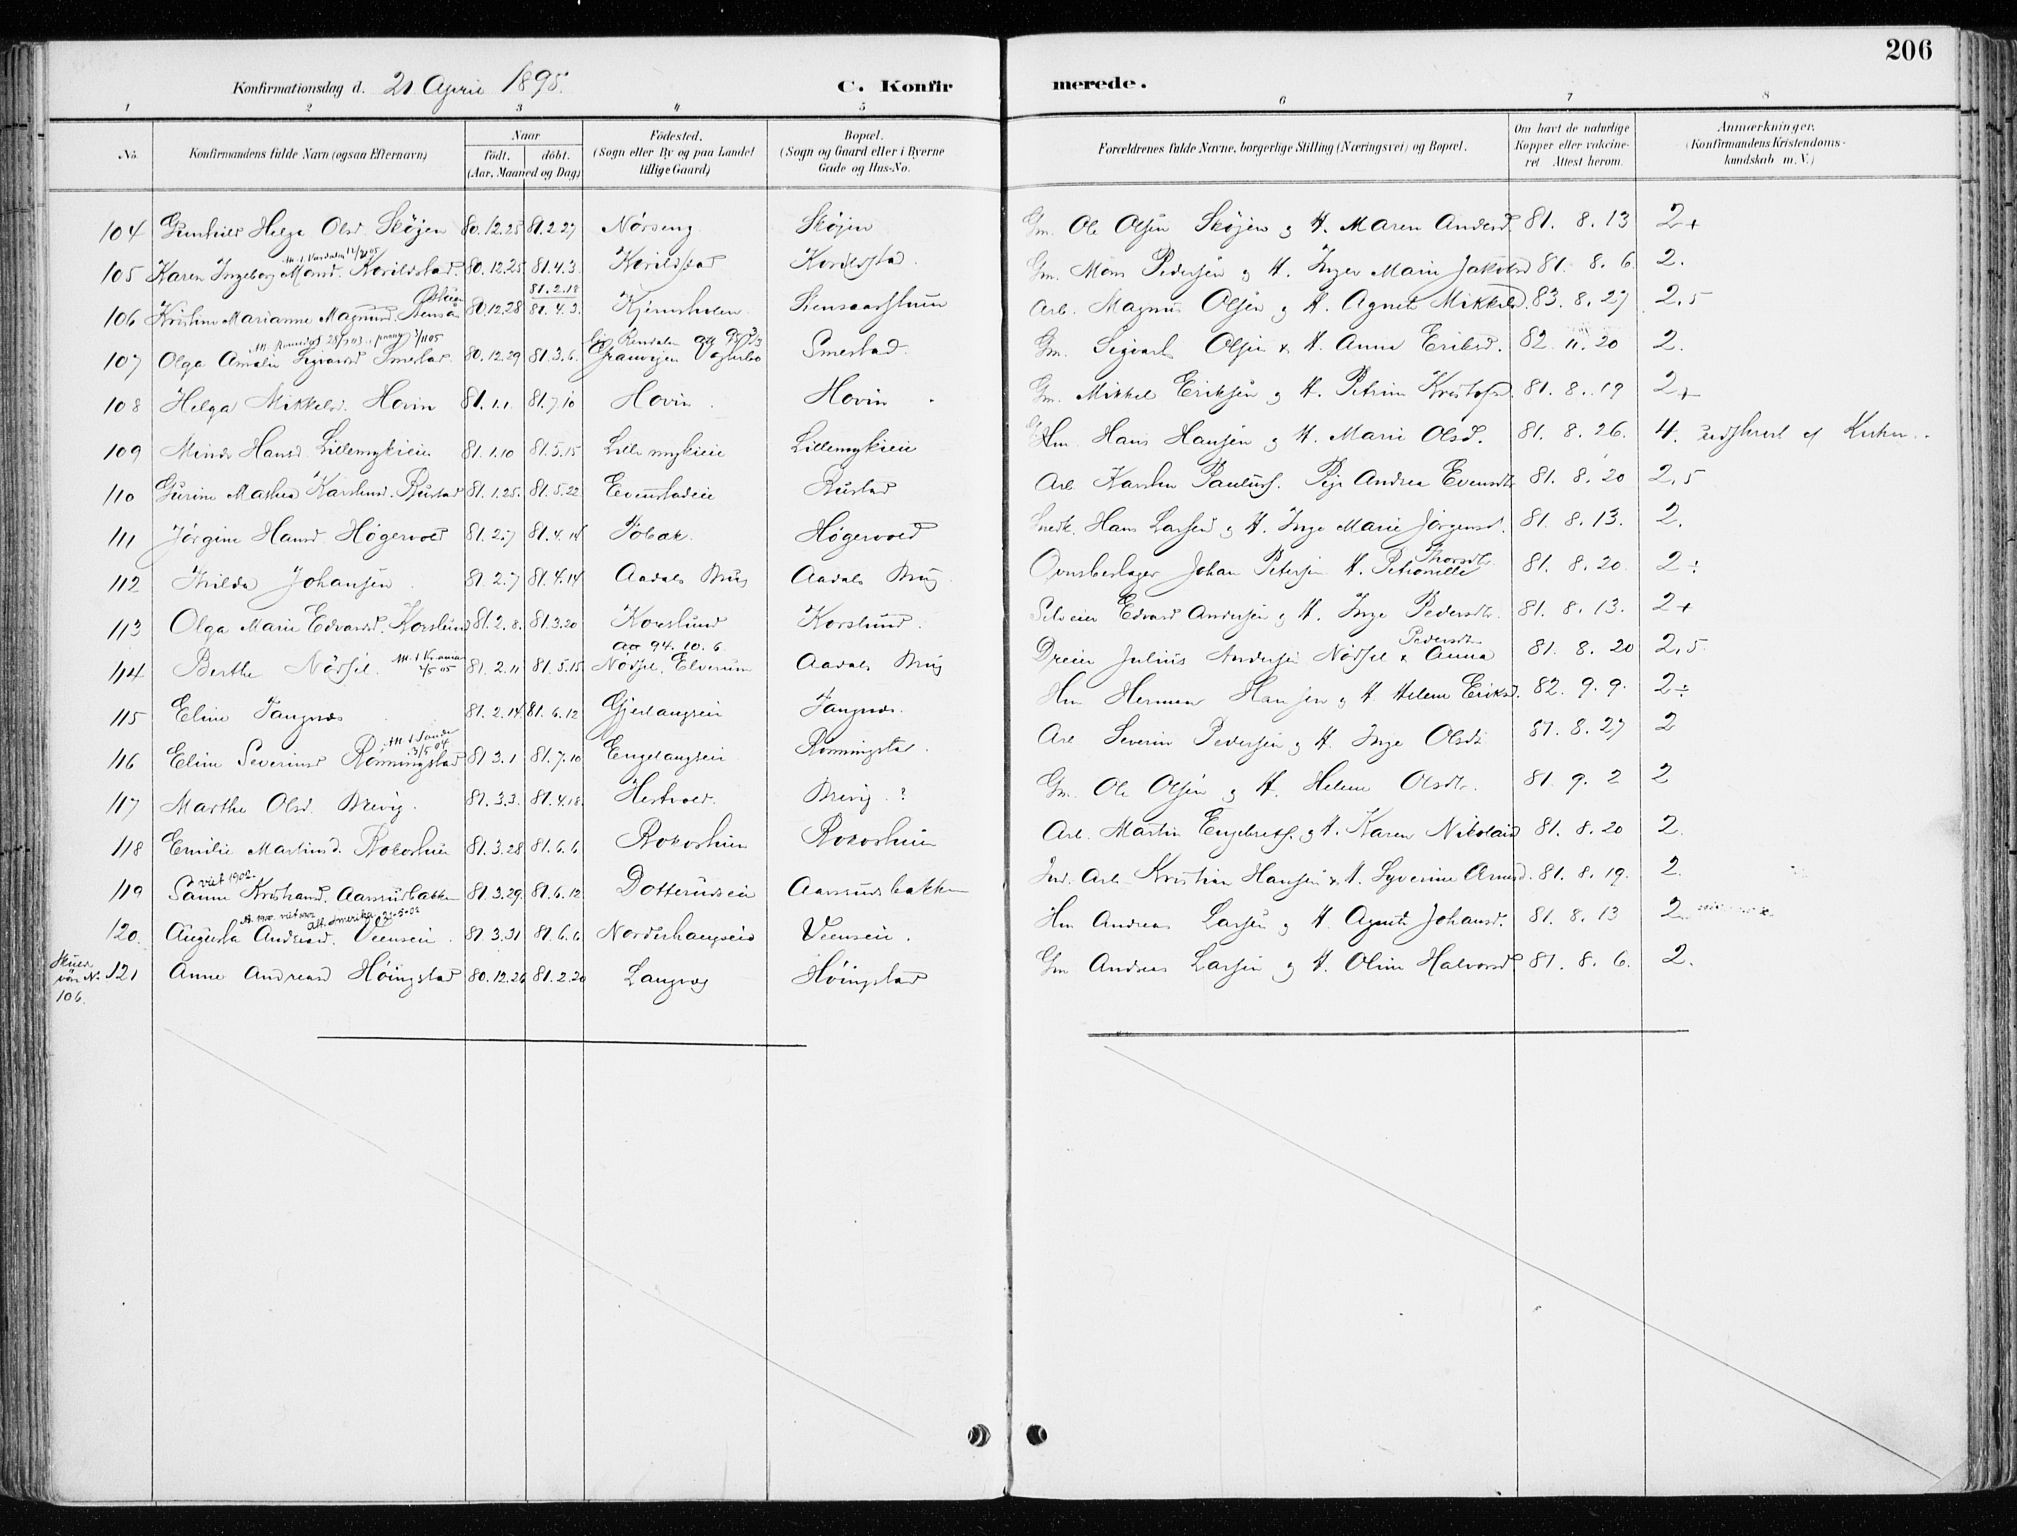 206
Konfirmationsdag d. 21 April 1895. C. Konfirmerede.
1 2 3 4 5 6 7 8
No. Konfirmandens fulde Navn (ogsaa Efternavn) Naar født. døbt. (Aar, Maaned og Dag) Fødested. (Sogn eller By og paa Landet tillige Gaard) Bopæl. (Sogn og Gaard eller i Byerne Gade og Hus-No. Forældrenes fulde Navne, borgerlige Stilling (Næringsvei) og Bopæl. Om havt de naturlige Kopper eller vakcineret. Attest herom. Anmærkninger. (Konfirmandens Kristendomskundskab m. V.)
104 Gunhild Helga Olsd. Skøjen 80.12.25 81.2.27 Nørseng Skøjen Gm. Ole Olsen Skøjen og H. Maren Andersd. 81. 8. 13 2+
105 Karen Ingeborg Monsd. Korildstad. 80.12.25 81.4.3. Korildstad Korildstad. Gm. Mons Pedersen og H. Inger Marie Jakobsd 81. 8. 6. 2.
81.2.18
106 Kristine Marianne Magnusd. 80.12.28 81.4.3. Kjernsholen Arb. Magnus Olsen og H. Agnete Mikkelsd. 83. 8. 27 2,5
107 Olga Amalie Sigvartsd Smestad 80.12.29 81.3.6. Smestad. Gm. Sigvart Olsen & H. Anne Eriksd. 82. 11. 20 2.
108 Helga Mikkelsd. Hovin 81.1.1. 81.7.10 Hovin. Hovin Gm. Mikkel Eriksen og H. Petrine Kristofsd. 81. 8. 19 2+
109 Hansd. Lillemykieie 81.1.10 81.5.15 Lillemykieie Lillemykieie Hm. Hans Hansen og H. Marie Olsd. 81. 8. 26. 4. af Kirken.
110 Gurine Mathea Karstensd. Rustad 81.1.25. 81.5.22 Evenstadeie Rustad Arb. Karsten Paulus. Pige Andrea Evensdtr 81. 8. 20 2,5
111 Jørgine Hansd. Høgervold 81.2.7 81.4.14 Fobæk. Høgervold Snedk. Hans Larsen og H. Inge Marie Jørgensd. 81. 8. 13. 2.
112 Hilda Johansen 81.2.7 81.4.14 Aadals Brug Aadals Brug Ovnsbeslager Johan Petersen H. Petronille Thorsdtr 81. 8. 20. 2÷
113 Olga Marie Edvardsd. Korslund 81.2.8. 81.3.20 Korslund Korslund. Selveier Edvard Andersen og H. Inge Pedersdtr. 81. 8. 13. 2+
94.10.6.
114 Berthe Nødsel. 81.2.11 81.5.15 Nødsel, Elverum Aadals Brug Dreier Julius Andersen Nødsel & Anna Pedersdtr 81. 8. 20 2,5
115 Eline Tangnæs 81.2.14 81.6.12 Gjerlangseie Tangnæs. Hm Herman Hansen og H. Helene Eriksd. 82. 9. 9. 2÷
116 Eline Severinsd Rønningstad 81.3.1 81.7.10 Engelaugseie Rønningstad. Arb. Severin Pedersen og H. Inge Olsdtr 81. 8. 27 2
117 Marthe Olsd. Brevig. 81.3.3. 81.4.18. Hestvold. Brevig.? Gm. Ole Olsen og H. Helene Olsdtr. 81. 9. 2 2
118 Emilie Martinsd. Rokoshuen 81.3.28 81.6.6 Rokoshuen Rokoshuen Arb. Martin Engebrets. og H. Karen Nikolaisd 81. 8. 20 2.
viet 1902.
119 Sanne Kristiansd. Aasrudbakken 81.3.29. 81.6.12. Dotterudseie Aasrudbakken Ind. Arb. Kristian Hansen & H. Syverine Arnesd. 81. 8. 19. 2.
120. Augusta Andreasd. Veenseie. 81.3.31 81.6.6 Norderhaugseie Veenseie. Hm Andreas Larsen og H. Agnete Johansd. 81. 8. 13 2.
121 Anne Andreasd Høingstad 80.12.26 81.2.20 Langvæg Høingstad Gm Andreas Larsen og H. Oline Halvorsd 81. 8. 6. 2.
106.